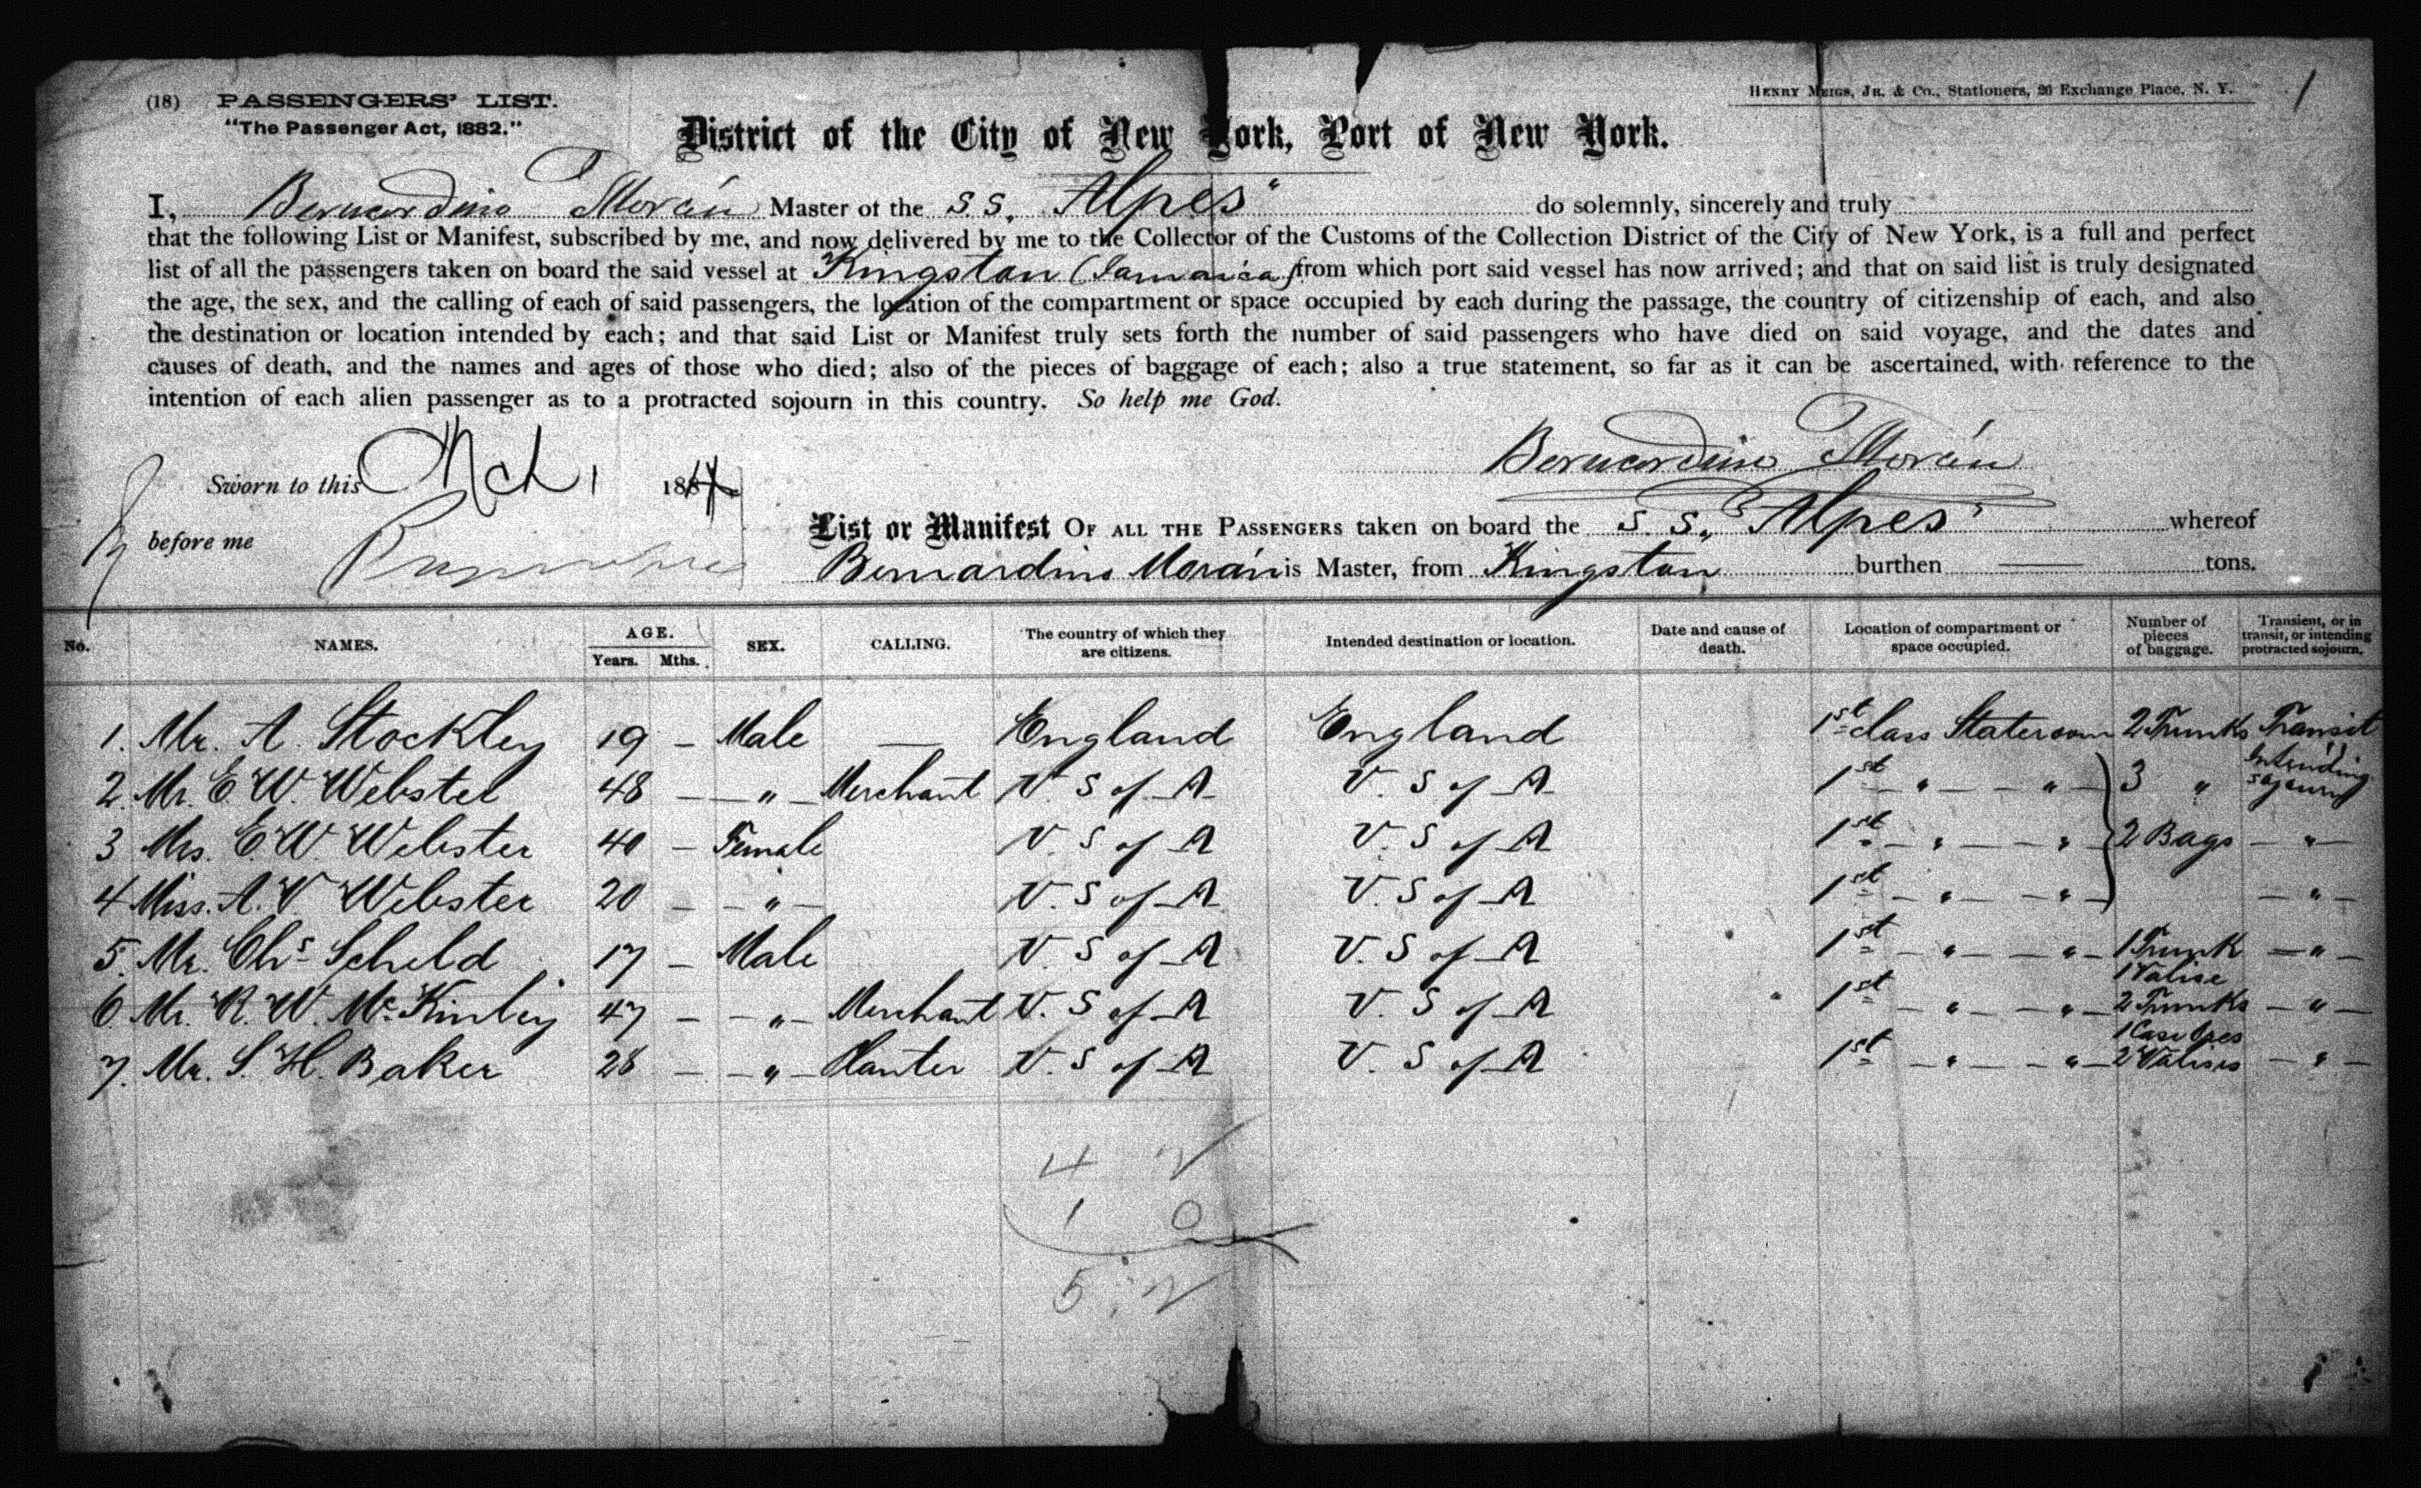 (18) PASSENGERS' LIST.
HENRY MEIGS, JR. & Co., Stationers, 26 Exchange Place, N. Y.
1
"The Passenger Act, 1882."
District of the City of New York, Port of New York.
I, Bernardino Morán Master of the S.S. "Alpes" do solemnly, sincerely and truly
that the following List or Manifest, subscribed by me, and now delivered by me to the Collector of the Customs of the Collection District of the City of New York, is a full and perfect
list of all the passengers taken on board the said vessel at Kingston (Jamaica) from which port said vessel has now arrived; and that on said list is truly designated
the age, the sex, and the calling of each of said passengers, the location of the compartment or space occupied by each during the passage, the country of citizenship of each, and also
the destination or location intended by each; and that said List or Manifest truly sets forth the number of said passengers who have died on said voyage, and the dates and
causes of death, and the names and ages of those who died; also of the pieces of baggage of each; also a true statement, so far as it can be ascertained, with reference to the
intention of each alien passenger as to a protracted sojourn in this country. So help me God.
Bernardino Morán
Sworn to this Mch 1 1884
before me
List or Manifest OF ALL THE PASSENGERS taken on board the S.S. "Alpes" whereof
Bernardino Morán is Master, from Kingston burthen — tons.
No. NAMES. AGE. Years. Mths. SEX. CALLING. The country of which they are citizens. Intended destination or location. Date and cause of death. Location of compartment or space occupied. Number of pieces of baggage. Transient, or in transit, or intending protracted sojourn.
1. Mr. A. Stockley 19 — Male — England England 1st class Stateroom 2 Trunks Transit
2. Mr. E. W. Webster 48 — " Merchant U. S of A U. S of A 1st " " 3 " Intending sojourn
3 Mrs. E. W. Webster 40 — Female U. S of A U. S of A 1st " " 2 Bags "
4 Miss. A. V Webster 20 — " U. S of A U. S of A 1st " " "
5. Mr. Chs Scheld 17 — Male U. S of A U. S of A 1st " " 1 Trunk 1 Valise "
6. Mr. R. W. McKinley 47 — " Merchant U. S of A U. S of A 1st " " 2 Trunks 1 Case "
7. Mr. S. H. Baker 28 — " Planter U. S of A U. S of A 1st " " 2 Valises "
4 2
1 0
5 2